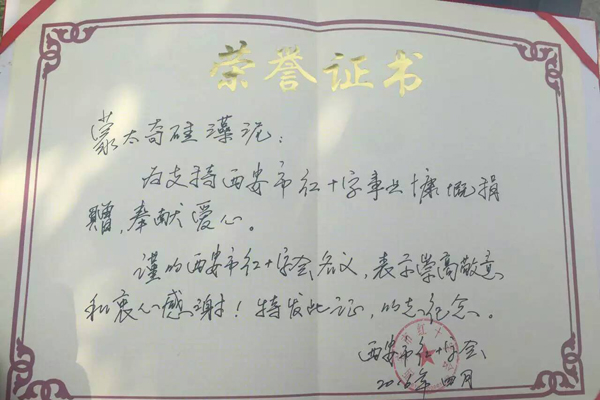 荣誉证书
蒙太奇硅藻泥：
为支持西安市红十字事业慷慨捐
赠，奉献爱心。
谨以西安市红十字会名义，表示崇高敬意
和衷心感谢！特发此证，以志纪念。
西安市红十字会
2016年四月